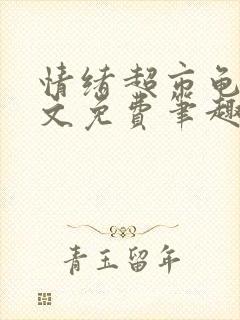 情绪超市龟
文免费笔趣
青玉留年